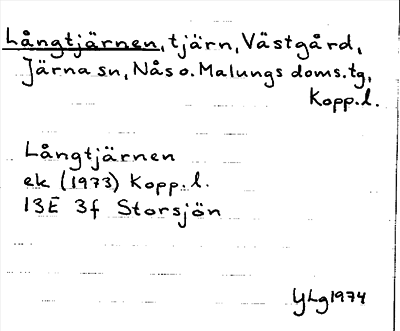 Långtjärnen, tjärn, Västgård,
Järna sn, Nås o. Malungs doms.tg,
Kopp.l.
Långtjärnen
ek (1973) Kopp.l.
13E 3f Storsjön
YLg 1974